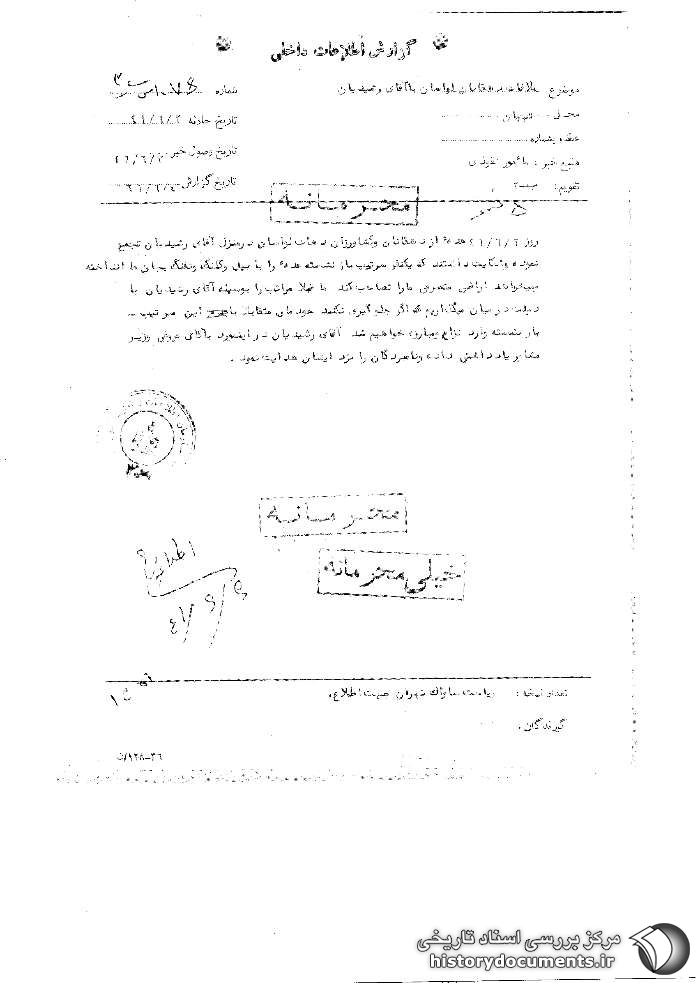 گزارش اطلاعات داخلی
موضوع ملاقات دهقانان لواسان باآقای رشیدیان
شماره
محل
تاریخ حادثه ۴۱/۶/۲
عطف بشماره
تاریخ وصول خبر
منبع خبر : مأمور نفوذی
تاریخ گزارش
تقویم :
محرمانه
روز ۴۱/۶/۲ عده‌ای از دهقانان وکشاورزان دهات لواسان درمنزل آقای رشیدیان تجمع
نموده وشکایت داشتند که یکنفر سرتیپ باز نشسته عده‌ای را با بیل وکلنگ وتفنگ بجان ما انداخته
میخواهند اراضی متصرفی مارا تصاحب کند ما قبلا مراتب را بوسیله آقای رشیدیان با
دولت در میان میگذاریم که اگر جلوگیری نکنند خودمان متقابلا با این سرتیپ
باز نشسته وارد نزاع ومبارزه خواهیم شد آقای رشیدیان در اینمورد باآقای وزیر
یادداشتی داده ونامبردگان را نزد ایشان هدایت نمود .
محرمانه
خیلی محرمانه
۴۱/۶/۶
تعداد نسخه : ریاست ساواک تهران جهت اطلاع.
۱
گیرندگان .
۱۲۸-۳۶/ف
مرکز بررسی اسناد تاریخی
historydocuments.ir